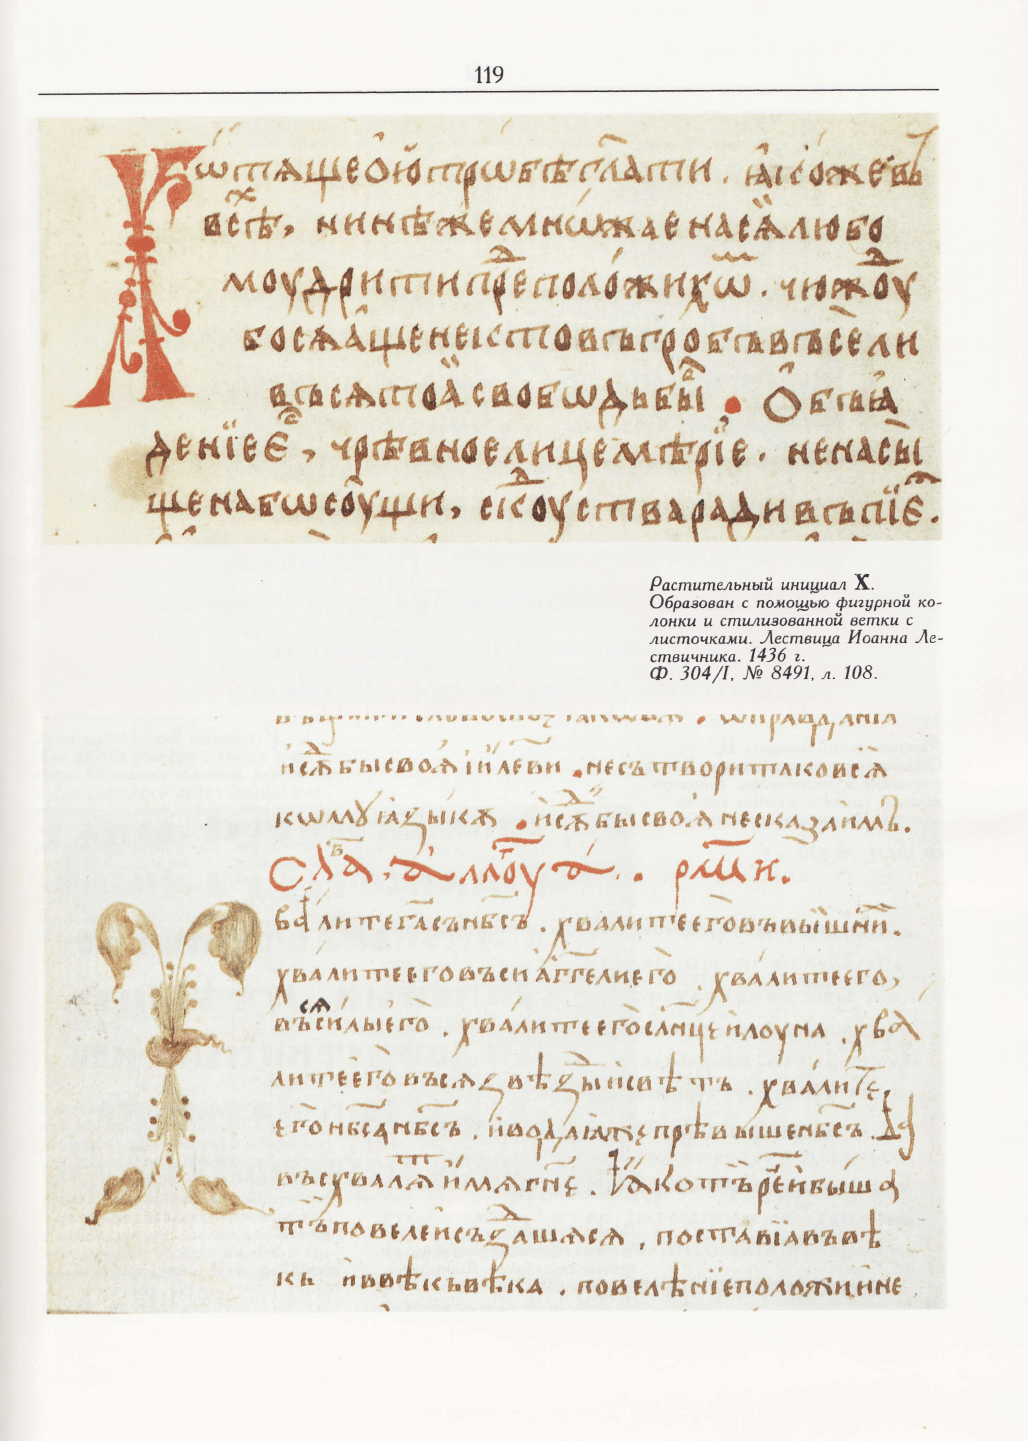 119
ѿтѧщеѹтрѡбѣгл҃ати. ꙗкоже въ
всѣх, нинѣжемнѡжаенасѧлюбо
моудритипреⷣположихѿ. чюжⷣоу
босѧащенеистовъгробъвъсели
въсѧтоасвобѡдьбы. Обьꙗ
денїееⷭ҇, чрѣвноелицемѣрїе. ненасы
щенабѡсоущи, скⷣоустварадивъпїеⷮ.
Растительный инициал Х.
Образован с помощью фигурной ко-
лонки и стилизованной ветки с
листочками. Лествица Иоанна Ле-
ствичника. 1436 г.
Ф. 304/I, № 8491, л. 108.
исѫⷣбысвоѧ іи҃леви. несътворитаковсѧ
комуꙗзыкѫ. исѫⷣбысвоѧнесказаимъ.
рм҃и.
валитега҃сън҃бсъ. хвалитеего҃въвышнїи.
хвалитееговъсиаг҃гелиего҃. хвалитеего,
въсѧсилыего҃. хвалитеего҃сл҃нцеилоуна. хва
литеего҃въсѧѕвѣѕⷣыисвѣтъ. хвалите
его҃н҃бсан҃бсъ. иводаꙗжепрѣвышен҃бсъ. Да
въсхвалѧтⷮимѧгн҃е. Ꙗкотъре҃ибыша
тъповелеисъѕⷣашѧсѧ, поставіавъвѣ
кь ивѣкьвѣка. повелѣнїеположииинe